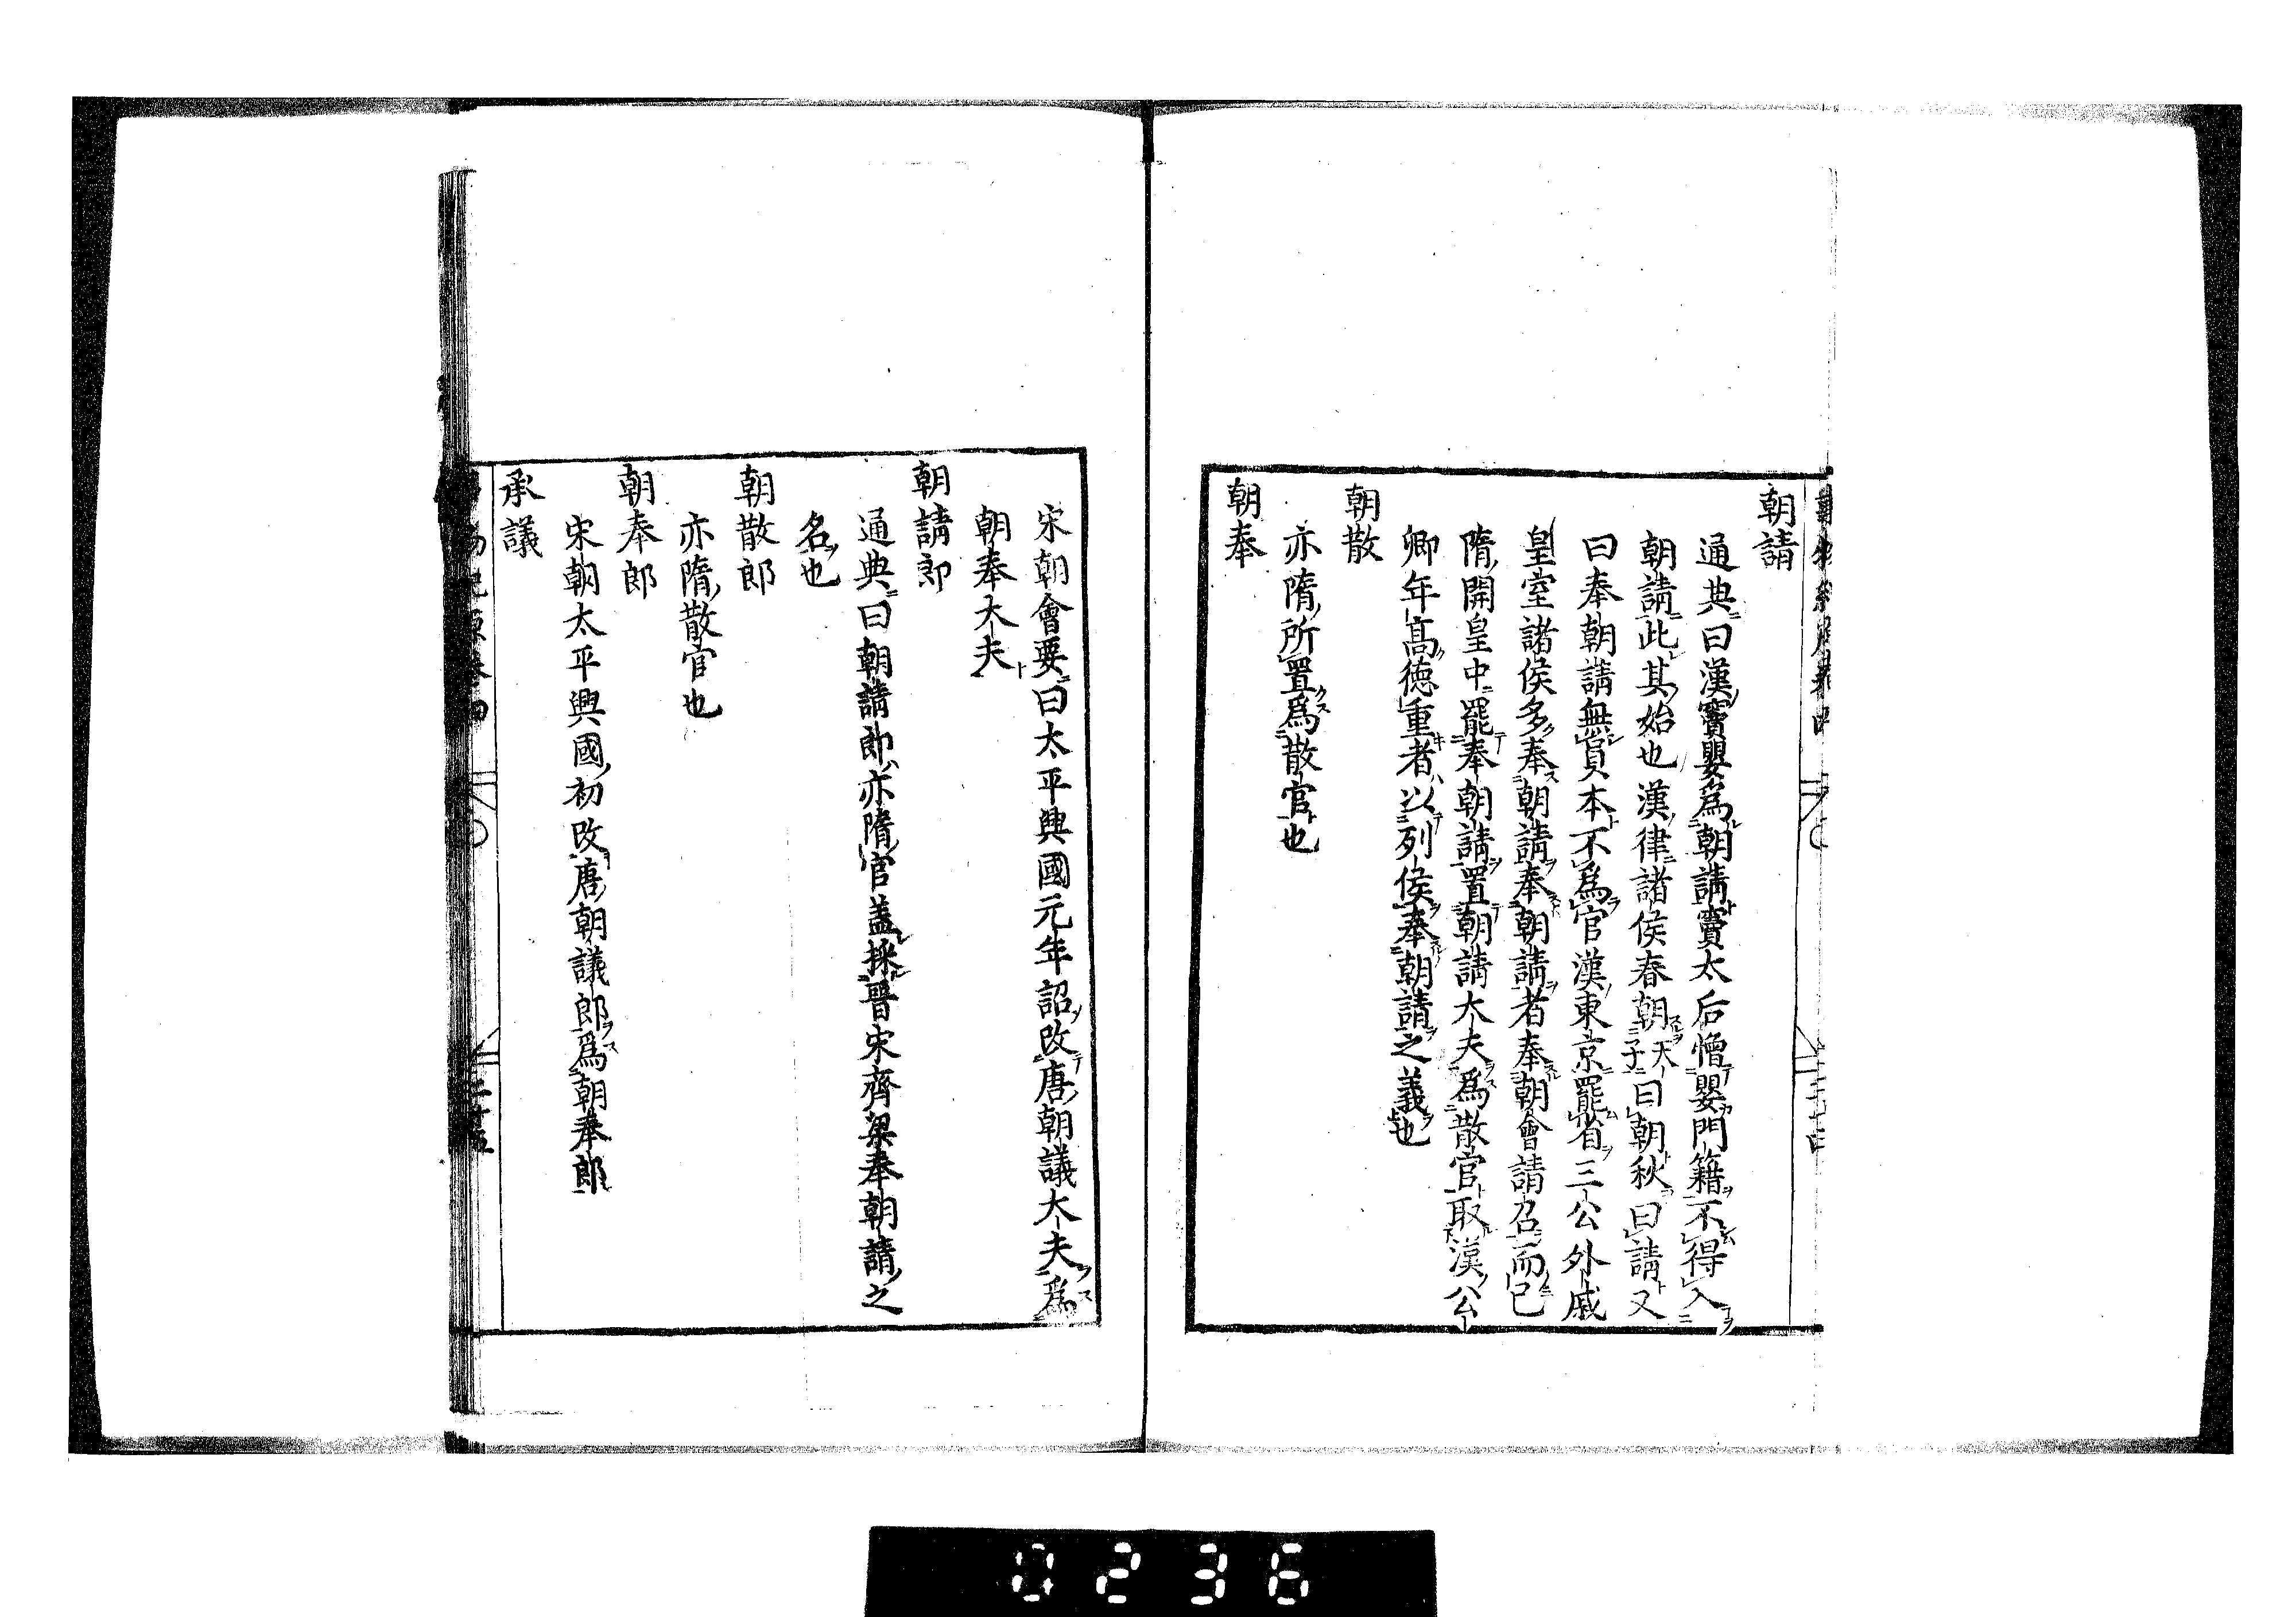 朝請
通典曰漢竇嬰爲朝請竇太后憎嬰門籍不得入
朝請此其始也漢律諸侯春朝天子曰朝秋曰請又
曰奉朝請無員本不爲官漢東京罷省三公外戚
皇室諸侯多奉朝請奉朝請者奉朝會請召而已
隋開皇中罷奉朝請置朝請大夫爲散官取漢公
卿年高德重者以列侯奉朝請之義也
朝散
亦隋所置爲散官也
朝奉
宋朝會要曰太平興國元年詔改唐朝議大夫爲
朝奉大夫
朝請郎
通典曰朝請郎亦隋官蓋採晉宋齊梁奉朝請之
名也
朝散郎
亦隋散官也
朝奉郎
宋朝太平興國初改唐朝議郎爲朝奉郎
承議
0236